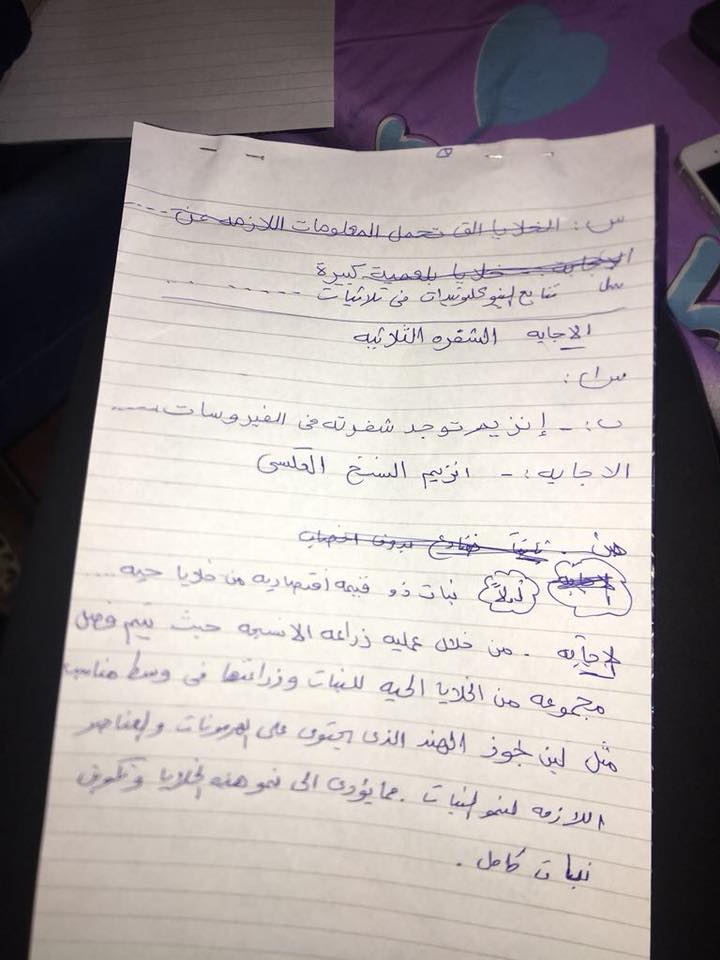 س: الخلايا التى تحمل المعلومات اللازمه عن ....
الاجابة - خلايا بلعمية كبيرة
تتابع النيوكليوتيدات فى ثلاثيات ....
الاجابه الشفره الثلاثيه
س١:
ب: - إنزيم توجد شفرته فى الفيروسات ....
الاجابه: - انزيم النسخ العكسى
ضفادع بدون اخصاب
الاجابة أولاً نبات ذو قيمه اقتصاديه من خلايا حيه ....
الاجابه - من خلال عمليه زراعه الانسجه حيث يتم فصل
مجموعه من الخلايا الحيه للنبات وزراعتها فى وسط مناسب
مثل لبن جوز الهند الذى يحتوى على الهرمونات والعناصر
اللازمه لنمو النبات . مما يؤدى الى نمو هذه الخلايا وتكوين
نبات كامل .